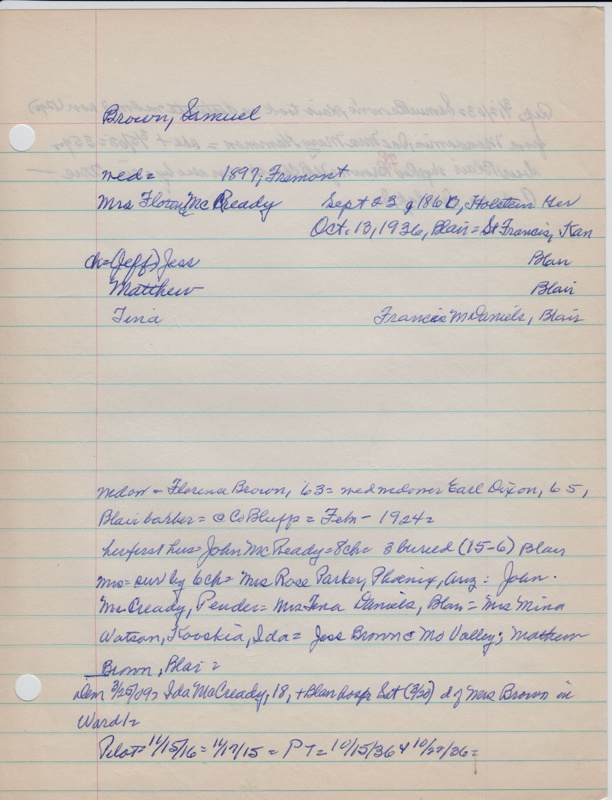 Brown, Samuel
med = 1897, Fremont
Mrs Florence McCready Sept 23, 1860, Holstein Ger
Oct. 13, 1936, Blair = St Francis, Kan
ch = (Jeff) Jess Blair
Matthew Blair
Tina Francis McDaniels, Blair
Florence Brown, 63 = med widower Earl Dixon, 65,
Blair barber = @ Co Bluffs = Feb - 1924 =
her first hus = John McCready = 8ch = 3 buried (15-6) Blair
Mrs = sur by 6 ch = Mrs Rose Parker, Phoenix, Ariz = John
McCready, Pender = Mrs Tina Daniels, Blair = Mrs Mina
Watson, Kooskia, Ida = Jess Brown @ Mo Valley; Matthew
Brown, Blair =
Dem 3/25/09 = Ida McCready, 18, + Blair hosp Sat (3/20) d of Mrs Brown in
Ward 1 =
Pilot = 11/15/16 = 11/17/15 = PT = 10/15/36 & 10/29/36 =